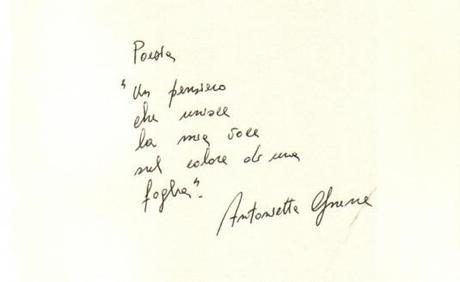 Poesia
"Un pensiero
che unisce
la mia voce
nel colore di una
foglia".
Antonietta